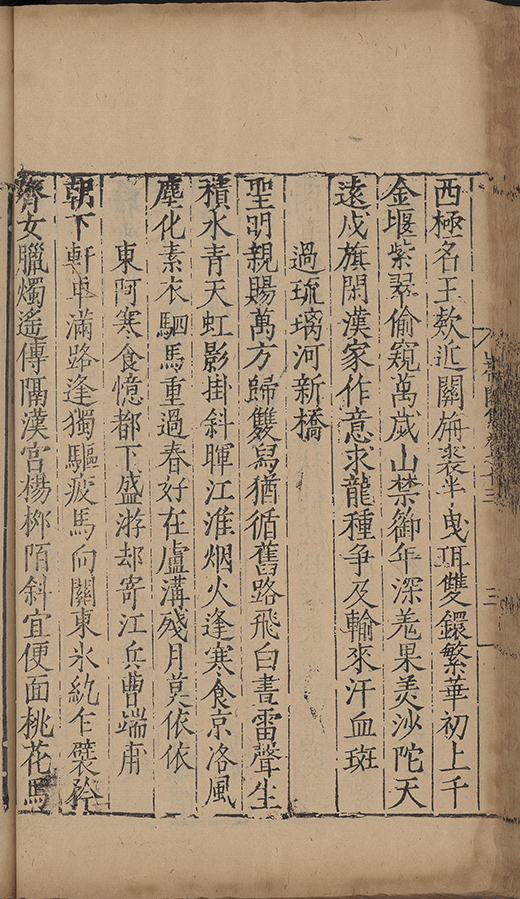 西極名王欵近關旃裘半曳珥雙鐶繁華初上千
金堰紫翠偷窺萬歲山禁御年深羗果美沙陀天
遠戍旗閑漢家作意求龍種爭及輸來汗血斑
過琉璃河新橋
聖明親賜萬方歸雙舄猶循舊路飛白晝雷聲生
積水青天虹影掛斜暉江淮烟火逢寒食京洛風
塵化素衣駟馬重過春好在盧溝殘月莫依依
東阿寒食憶都下盛游却寄江兵曹端甫
朝下軒車滿路逢獨驅疲馬向關東氷紈乍襞矜
齊女臘燭遙傳隔漢宮楊栁陌斜宜便面桃花馬